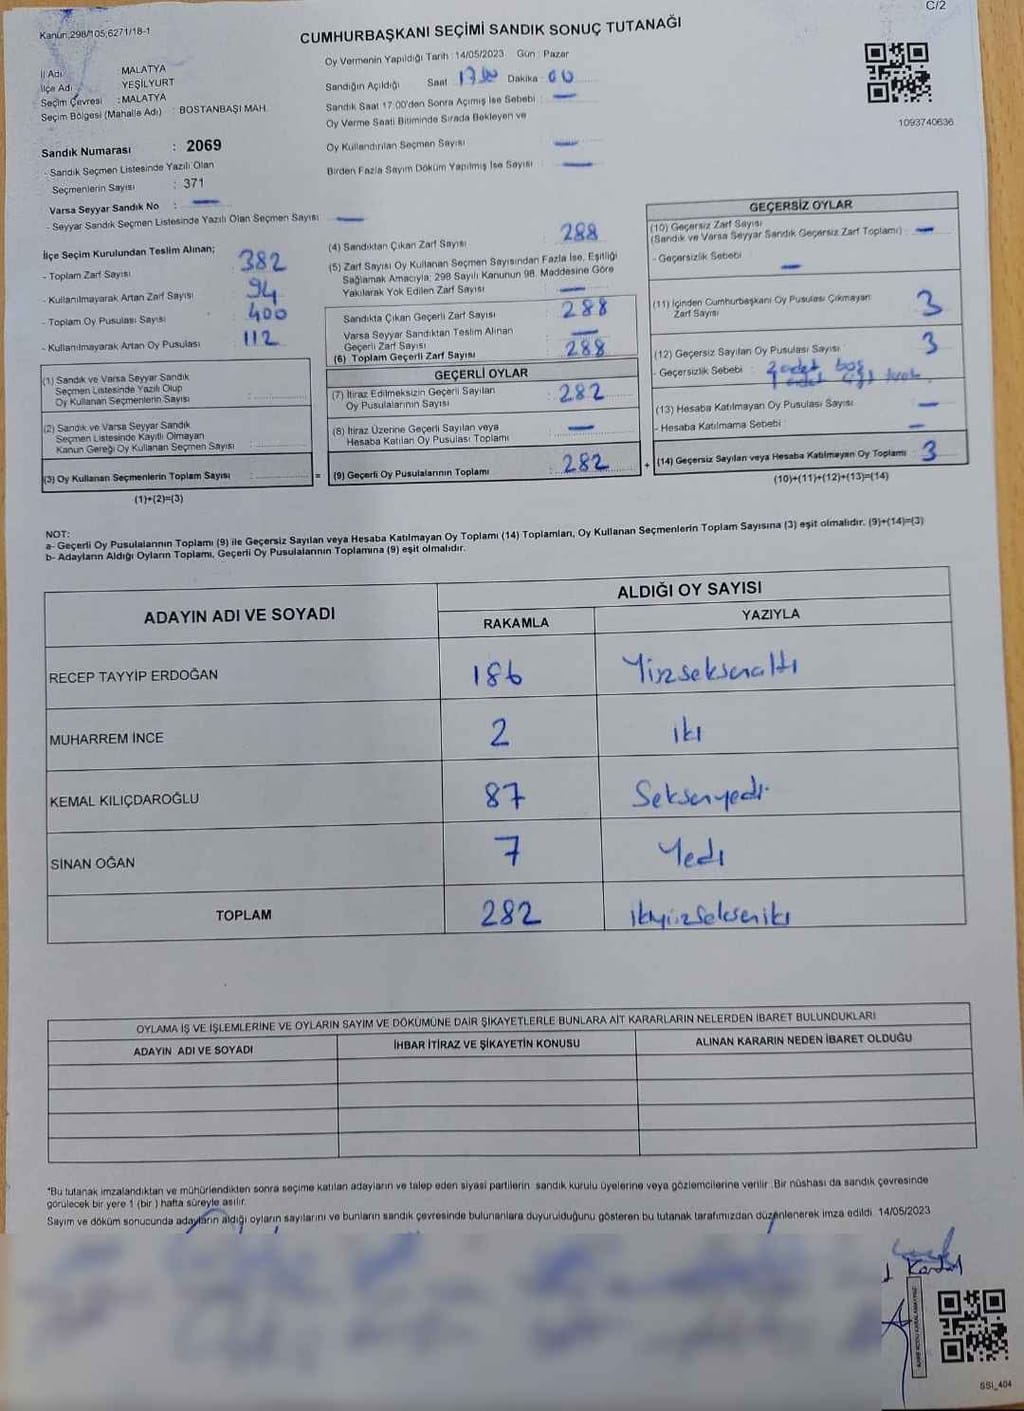 C/2
Kanun;298/105;6271/18-1
CUMHURBAŞKANI SEÇİMİ SANDIK SONUÇ TUTANAĞI
İl Adı : MALATYA
İlçe Adı : YEŞİLYURT
Seçim Çevresi : MALATYA
Seçim Bölgesi (Mahalle Adı) : BOSTANBAŞI MAH.
Sandık Numarası : 2069
- Sandık Seçmen Listesinde Yazılı Olan
Seçmenlerin Sayısı : 371
Varsa Seyyar Sandık No : —
- Seyyar Sandık Seçmen Listesinde Yazılı Olan Seçmen Sayısı : —
Oy Vermenin Yapıldığı Tarih :14/05/2023 Gün : Pazar
Sandığın Açıldığı Saat : 17 00 Dakika : 00
Sandık Saat 17:00'den Sonra Açımış İse Sebebi : —
Oy Verme Saati Bitiminde Sırada Bekleyen ve
Oy Kullandırılan Seçmen Sayısı : —
Birden Fazla Sayım Döküm Yapılmış İse Sayısı : —
1093740636
İlçe Seçim Kurulundan Teslim Alınan;
- Toplam Zarf Sayısı : 382
- Kullanılmayarak Artan Zarf Sayısı : 94
- Toplam Oy Pusulası Sayısı : 400
- Kullanılmayarak Artan Oy Pusulası : 112
(1) Sandık ve Varsa Seyyar Sandık
Seçmen Listesinde Yazılı Olup
Oy Kullanan Seçmenlerin Sayısı :
(2) Sandık ve Varsa Seyyar Sandık
Seçmen Listesinde Kayıtlı Olmayan
Kanun Gereği Oy Kullanan Seçmen Sayısı :
(3) Oy Kullanan Seçmenlerin Toplam Sayısı : =
(1)+(2)=(3)
(4) Sandıktan Çıkan Zarf Sayısı : 288
(5) Zarf Sayısı Oy Kullanan Seçmen Sayısından Fazla İse, Eşitliği
Sağlamak Amacıyla; 298 Sayılı Kanunun 98. Maddesine Göre
Yakılarak Yok Edilen Zarf Sayısı : —
Sandıkta Çıkan Geçerli Zarf Sayısı : 288
Varsa Seyyar Sandıktan Teslim Alınan
Geçerli Zarf Sayısı : —
(6) Toplam Geçerli Zarf Sayısı : 288
GEÇERLİ OYLAR
(7) İtiraz Edilmeksizin Geçerli Sayılan
Oy Pusulalarının Sayısı : 282
(8) İtiraz Üzerine Geçerli Sayılan veya
Hesaba Katılan Oy Pusulası Toplamı : —
(9) Geçerli Oy Pusulalarının Toplamı : 282 +
GEÇERSİZ OYLAR
(10) Geçersiz Zarf Sayısı
(Sandık ve Varsa Seyyar Sandık Geçersiz Zarf Toplamı) : —
- Geçersizlik Sebebi : —
(11) İçinden Cumhurbaşkanı Oy Pusulası Çıkmayan
Zarf Sayısı : 3
(12) Geçersiz Sayılan Oy Pusulası Sayısı : 3
- Geçersizlik Sebebi : adet boş
adet çift
(13) Hesaba Katılmayan Oy Pusulası Sayısı : —
- Hesaba Katılmama Sebebi : —
(14) Geçersiz Sayılan veya Hesaba Katılmayan Oy Toplamı : 3
(10)+(11)+(12)+(13)=(14)
NOT:
a- Geçerli Oy Pusulalarının Toplamı (9) ile Geçersiz Sayılan veya Hesaba Katılmayan Oy Toplamı (14) Toplamları, Oy Kullanan Seçmenlerin Toplam Sayısına (3) eşit olmalıdır. (9)+(14)=(3)
b- Adayların Aldığı Oyların Toplamı, Geçerli Oy Pusulalarının Toplamına (9) eşit olmalıdır.
ADAYIN ADI VE SOYADI
ALDIĞI OY SAYISI
RAKAMLA YAZIYLA
RECEP TAYYİP ERDOĞAN 186 Yüzseksenaltı
MUHARREM İNCE 2 iki
KEMAL KILIÇDAROĞLU 87 Seksenyedi
SİNAN OĞAN 7 Yedi
TOPLAM 282 ikiyüzSekseniki
OYLAMA İŞ VE İŞLEMLERİNE VE OYLARIN SAYIM VE DÖKÜMÜNE DAİR ŞİKAYETLERLE BUNLARA AİT KARARLARIN NELERDEN İBARET BULUNDUKLARI
ADAYIN ADI VE SOYADI İHBAR İTİRAZ VE ŞİKAYETİN KONUSU ALINAN KARARIN NEDEN İBARET OLDUĞU
*Bu tutanak imzalandıktan ve mühürlendikten sonra seçime katılan adayların ve talep eden siyasi partilerin sandık kurulu üyelerine veya gözlemcilerine verilir. Bir nüshası da sandık çevresinde
görülecek bir yere 1 (bir ) hafta süreyle asılır.
Sayım ve döküm sonucunda adayların aldığı oyların sayılarını ve bunların sandık çevresinde bulunanlara duyurulduğunu gösteren bu tutanak tarafımızdan düzenlenerek imza edildi. 14/05/2023
SSI_404